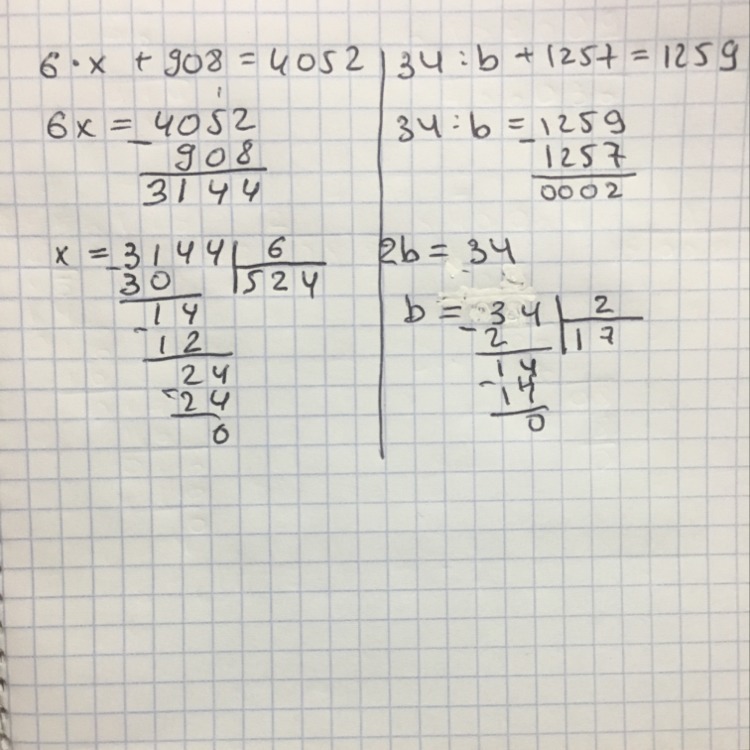 6 · x + 908 = 4052
6x = 4052
- 908
3144
x = 3144 | 6
- 30 | 524
14
- 12
24
- 24
0
34 : b + 1257 = 1259
34 : b = 1259
- 1257
0002
2b = 34
b = 34 | 2
- 2 | 17
14
- 14
0